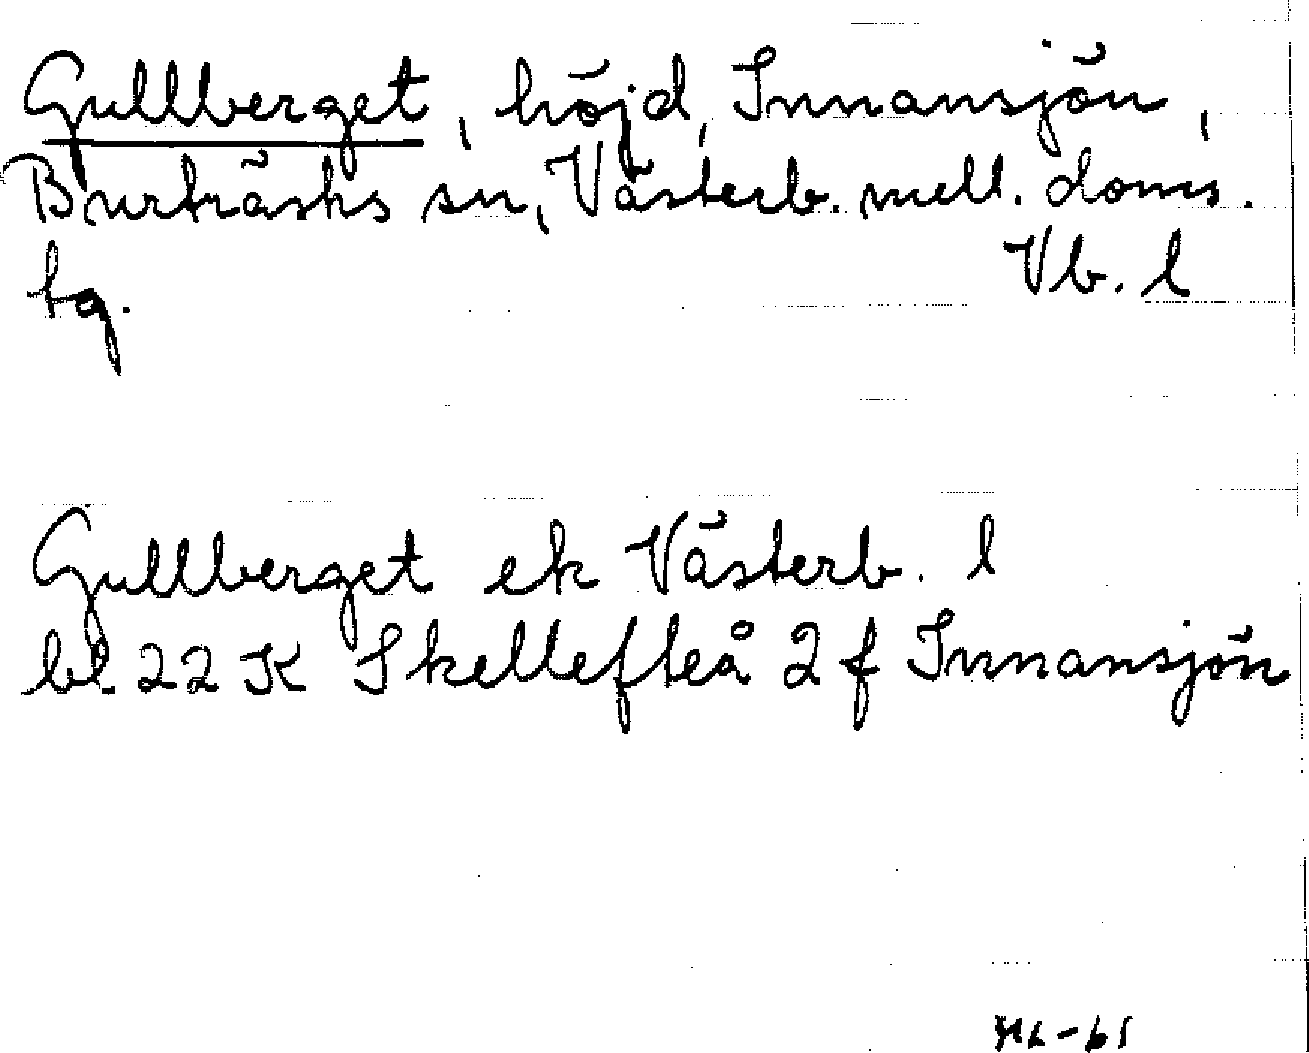 Gullberget, höjd, Innansjön,
Burträsks sn, Västerb. mell. doms.
tg. Vb. l
Gullberget ek Västerb. l
bl. 22 K Skellefteå 2 f Innansjön